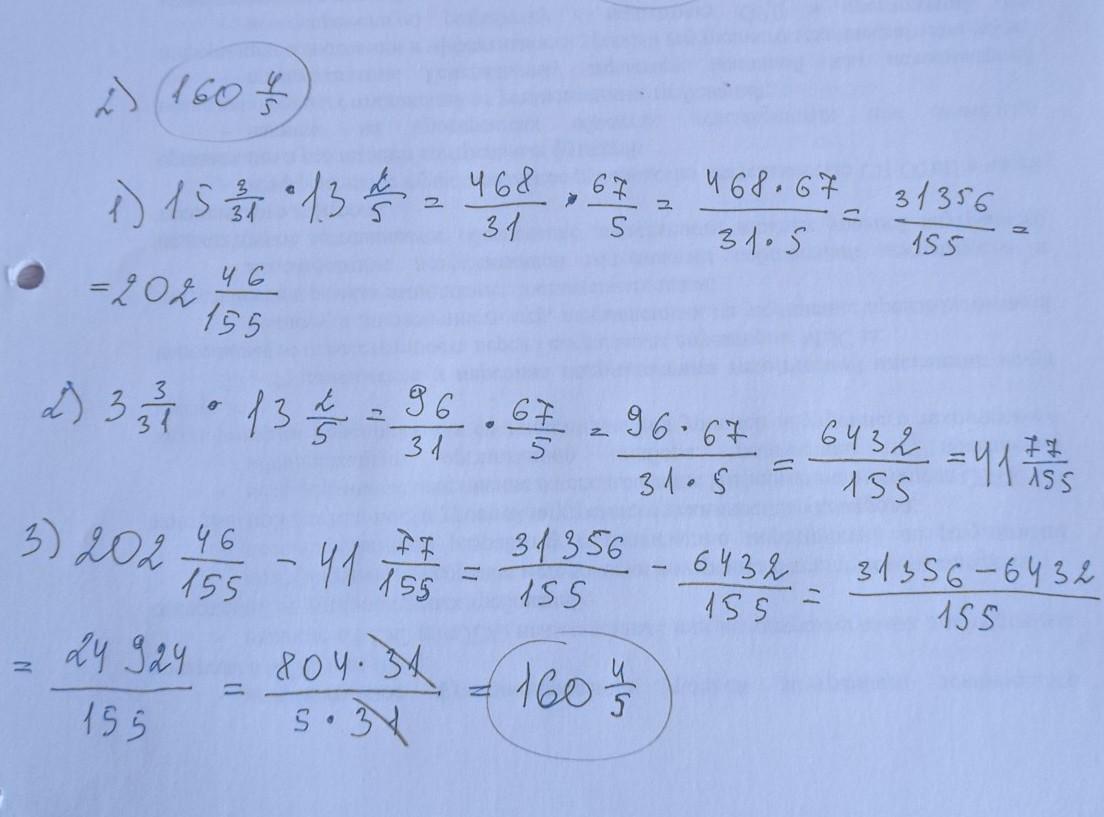 2) 160 4/5
1) 15 3/31 · 13 2/5 = 468/31 · 67/5 = 468·67/31·5 = 31356/155 =
= 202 46/155
2) 3 3/31 · 13 2/5 = 96/31 · 67/5 = 96·67/31·5 = 6432/155 = 41 77/155
3) 202 46/155 - 41 77/155 = 31356/155 6432/155 = 31356-6432/155
= 24924/155 = 804·31/5·31 = 160 4/5